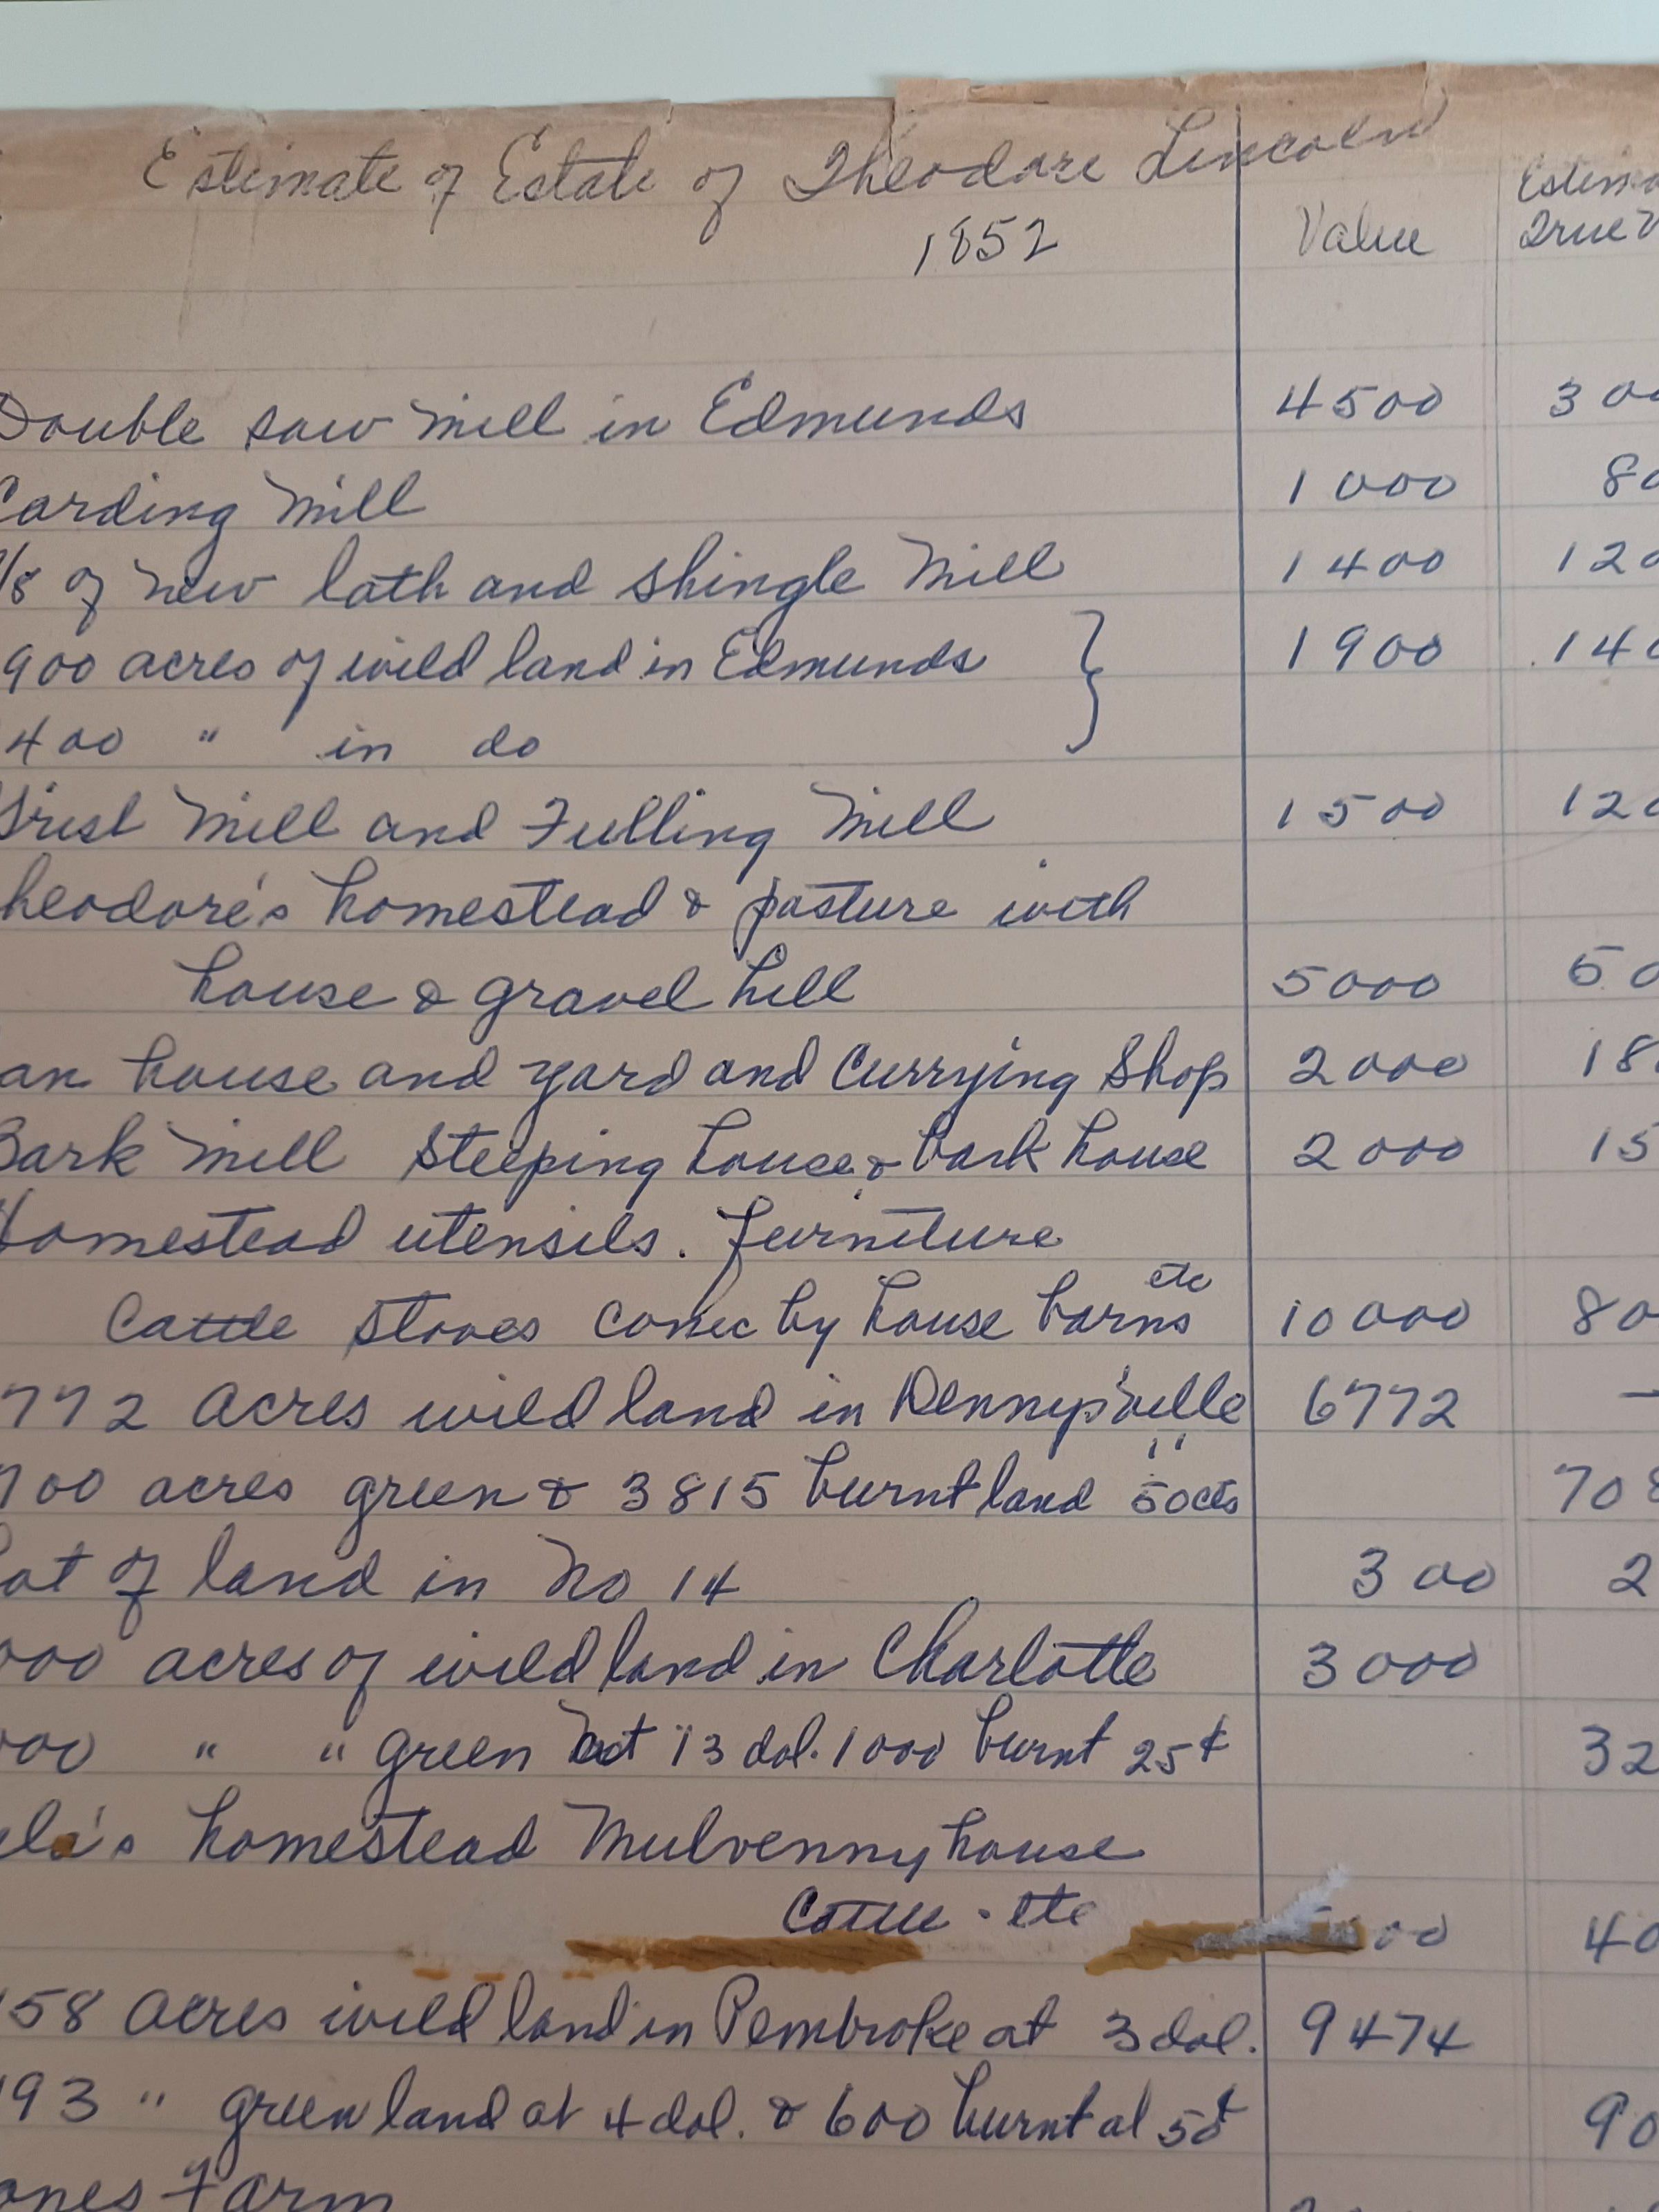 Estimate of Estate of Theodore Lincoln
1852 Value Estima
True V
Double saw mill in Edmunds 4500 300
Carding Mill 1000 80
/8 of new lath and shingle Mill 1400 120
900 acres of wild land in Edmunds } 1900 140
400 " in do
Grist Mill and Fulling Mill 1500 120
heodore's homestead & pasture with
house & gravel hill 5000 50
an house and yard and Currying Shop 2000 18
Bark Mill Steeping house & bark house 2000 15
Homestead utensils. furniture
Cattle Stoves by house barns etc 10000 80
772 Acres wild land in Dennysville 6772 —
700 acres green & 3815 burnt land " 50cts 708
Lot of land in No 14 300 2
000 acres of wild land in Charlotte 3000
000 " " green at 13 dol. 1000 burnt 25¢ 32
ela's homestead Mulvenny house
Cattle . etc 00 40
58 acres wild land in Pembroke at 3 dol. 9474
93 " green land at 4 dol. & 600 burnt at 50¢ 90
ones Farm